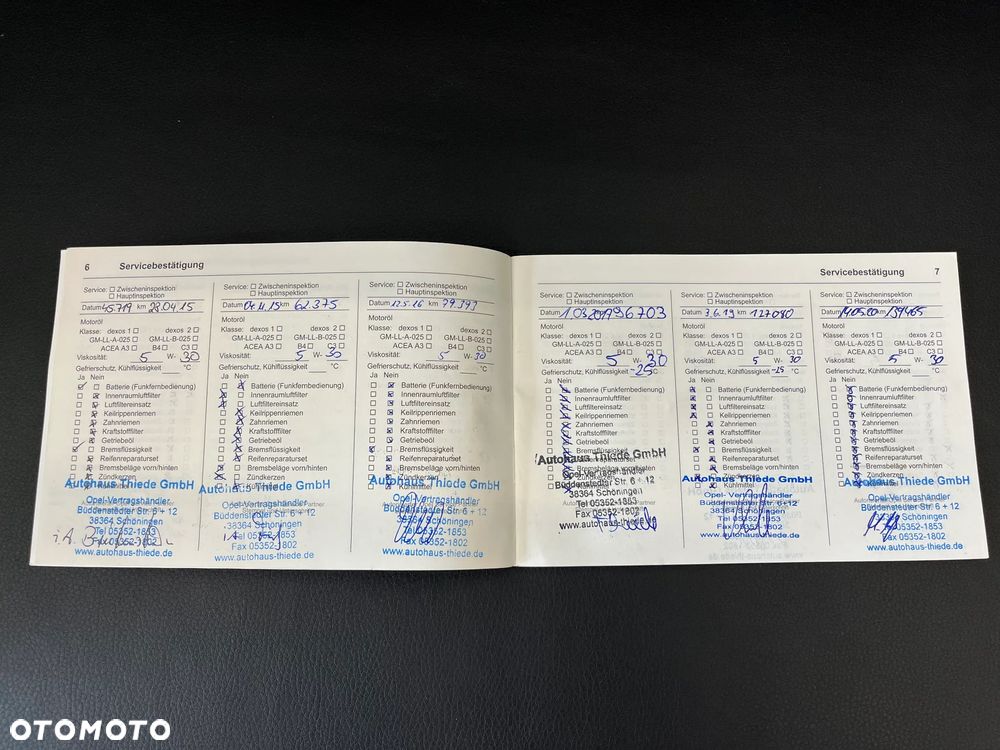 6 Servicebestätigung
Service: ☐ Zwischeninspektion
☐ Hauptinspektion
Datum 45719 km 28.04.15
Motoröl
Klasse: dexos 1 ☐ dexos 2 ☐
GM-LL-A-025 ☐ GM-LL-B-025 ☐
ACEA A3 ☐ B4 ☐ C3 ☐
Viskosität: 5 W- 30
Gefrierschutz, Kühlflüssigkeit °C
Ja Nein
Batterie (Funkfernbedienung)
Innenraumluftfilter
Luftfiltereinsatz
Keilrippenriemen
Zahnriemen
Kraftstofffilter
Getriebeöl
Bremsflüssigkeit
Reifenreparaturset
Bremsbeläge vorn/hinten
Zündkerzen
Autohaus Thiede GmbH
Opel-Vertragshändler
Büddenstedter Str. 6 + 12
38364 Schöningen
Tel 05352-1853
Fax 05352-1802
www.autohaus-thiede.de
Service: ☐ Zwischeninspektion
☐ Hauptinspektion
Datum 04.11.15 km 62.375
Motoröl
Klasse: dexos 1 ☐ dexos 2 ☐
GM-LL-A-025 ☐ GM-LL-B-025 ☐
ACEA A3 ☐ B4 ☐ C3 ☐
Viskosität: 5 W- 30
Gefrierschutz, Kühlflüssigkeit °C
Ja Nein
Batterie (Funkfernbedienung)
Innenraumluftfilter
Luftfiltereinsatz
Keilrippenriemen
Zahnriemen
Kraftstofffilter
Getriebeöl
Bremsflüssigkeit
Reifenreparaturset
Bremsbeläge vorn/hinten
Zündkerzen
Kühlmittel
Autohaus Thiede GmbH
Opel-Vertragshändler
Büddenstedter Str. 6 + 12
38364 Schöningen
Tel 05352-1853
Fax 05352-1802
www.autohaus-thiede.de
Service: ☐ Zwischeninspektion
☐ Hauptinspektion
Datum 12.5.16 km 79.393
Motoröl
Klasse: dexos 1 ☐ dexos 2 ☐
GM-LL-A-025 ☐ GM-LL-B-025 ☐
ACEA A3 ☐ B4 ☐ C3 ☐
Viskosität: 5 W- 30
Gefrierschutz, Kühlflüssigkeit °C
Ja Nein
Batterie (Funkfernbedienung)
Innenraumluftfilter
Luftfiltereinsatz
Keilrippenriemen
Zahnriemen
Kraftstofffilter
Getriebeöl
Bremsflüssigkeit
Reifenreparaturset
Bremsbeläge vorn/hinten
Zündkerzen
Kühlmittel
Autohaus Thiede GmbH
Opel-Vertragshändler
Büddenstedter Str. 6 + 12
38364 Schöningen
Tel 05352-1853
Fax 05352-1802
www.autohaus-thiede.de
Servicebestätigung 7
Service: ☐ Zwischeninspektion
☐ Hauptinspektion
Datum
Motoröl
Klasse: dexos 1 ☐ dexos 2 ☐
GM-LL-A-025 ☐ GM-LL-B-025 ☐
ACEA A3 ☐ B4 ☐ C3 ☐
Viskosität: 5 W- 30
Gefrierschutz, Kühlflüssigkeit -25 °C
Ja Nein
Batterie (Funkfernbedienung)
Innenraumluftfilter
Luftfiltereinsatz
Keilrippenriemen
Zahnriemen
Kraftstofffilter
Getriebeöl
Bremsflüssigkeit
Autohaus Thiede GmbH
Opel-Vertragshändler
Büddenstedter Str. 6 + 12
38364 Schöningen
Tel 05352-1853
Fax 05352-1802
www.autohaus-thiede.de
Service: ☐ Zwischeninspektion
☐ Hauptinspektion
Datum 3.6.19 km 127040
Motoröl
Klasse: dexos 1 ☐ dexos 2 ☐
GM-LL-A-025 ☐ GM-LL-B-025 ☐
ACEA A3 ☐ B4 ☐ C3 ☐
Viskosität: 5 W- 30
Gefrierschutz, Kühlflüssigkeit -25 °C
Ja Nein
Batterie (Funkfernbedienung)
Innenraumluftfilter
Luftfiltereinsatz
Keilrippenriemen
Zahnriemen
Kraftstofffilter
Getriebeöl
Bremsflüssigkeit
Reifenreparaturset
Bremsbeläge vorn/hinten
Zündkerzen
Autohaus Thiede GmbH
Opel-Vertragshändler
Büddenstedter Str. 6+12
38364 Schöningen
Tel 05352-1853
Fax 05352-1802
www.autohaus-thiede.de
Service: ☐ Zwischeninspektion
☐ Hauptinspektion
Datum
Motoröl
Klasse: dexos 1 ☐ dexos 2 ☐
GM-LL-A-025 ☐ GM-LL-B-025 ☐
ACEA A3 ☐ B4 ☐ C3 ☐
Viskosität: 5 W- 30
Gefrierschutz, Kühlflüssigkeit °C
Ja Nein
Batterie (Funkfernbedienung)
Innenraumluftfilter
Luftfiltereinsatz
Keilrippenriemen
Zahnriemen
Kraftstofffilter
Getriebeöl
Bremsflüssigkeit
Reifenreparaturset
Bremsbeläge vorn/hinten
Zündkerzen
Autohaus Thiede GmbH
Opel-Vertragshändler
Büddenstedter Str. 6 + 12
38364 Schöningen
Tel 05352-1853
Fax 05352-1802
www.autohaus-thiede.de
OTOMOTO